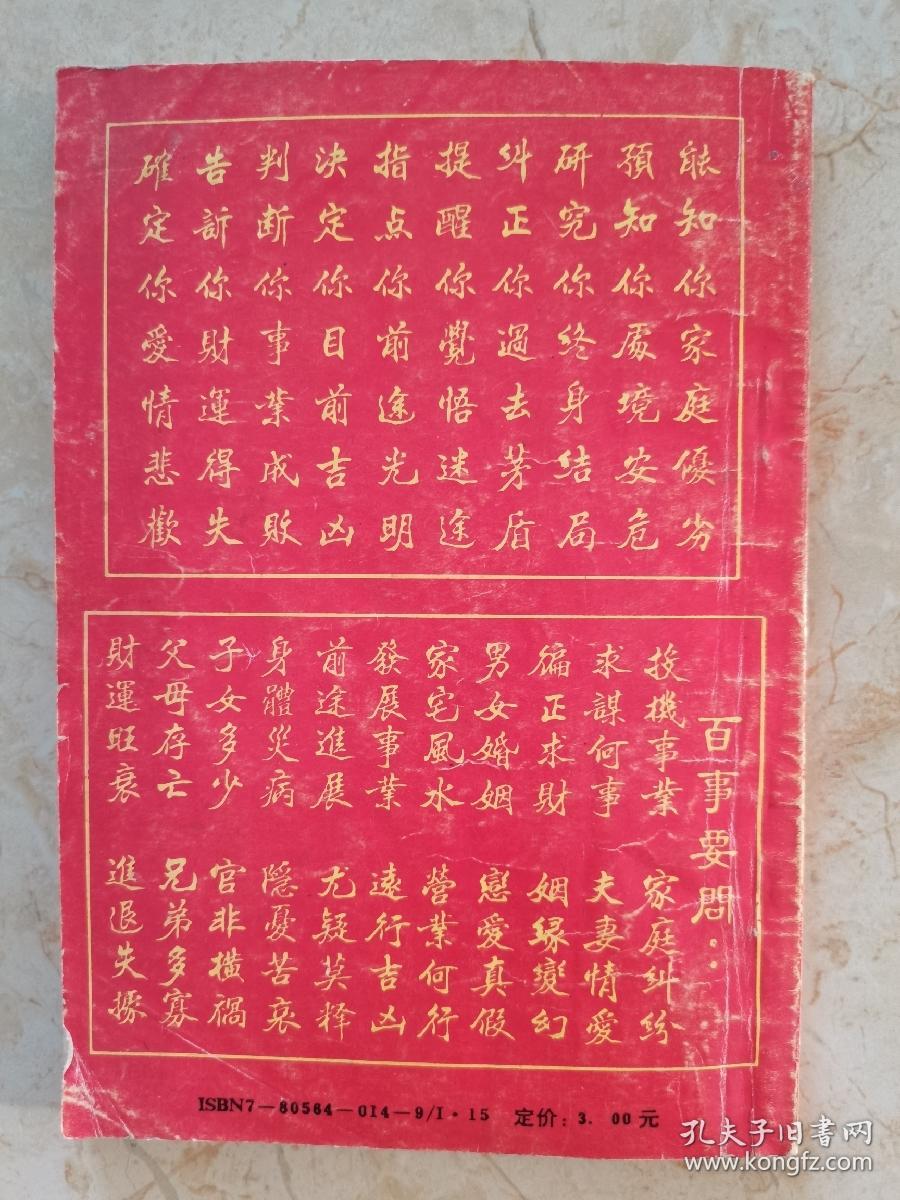 能知你家庭優劣
預知你處境安危
研究你終身結局
糾正你過去茅盾
提醒你覺悟迷途
指点你前途光明
決定你目前吉凶
判断你事業成敗
告訴你財運得失
確定你愛情悲歡
百事要問：
投機事業 家庭糾紛
求謀何事 夫妻情愛
偏正求財 姻緣變幻
男女婚姻 戀愛真假
家宅風水 營業何行
發展事業 遠行吉凶
前途進展 尤疑莫释
身體災病 隱憂苦衷
子女多少 官非橫禍
父母存亡 兄弟多寡
財運旺衰 進退失據
ISBN7-80564-014-9/I·15 定价：3.00元
孔夫子旧书网
www.kongfz.com